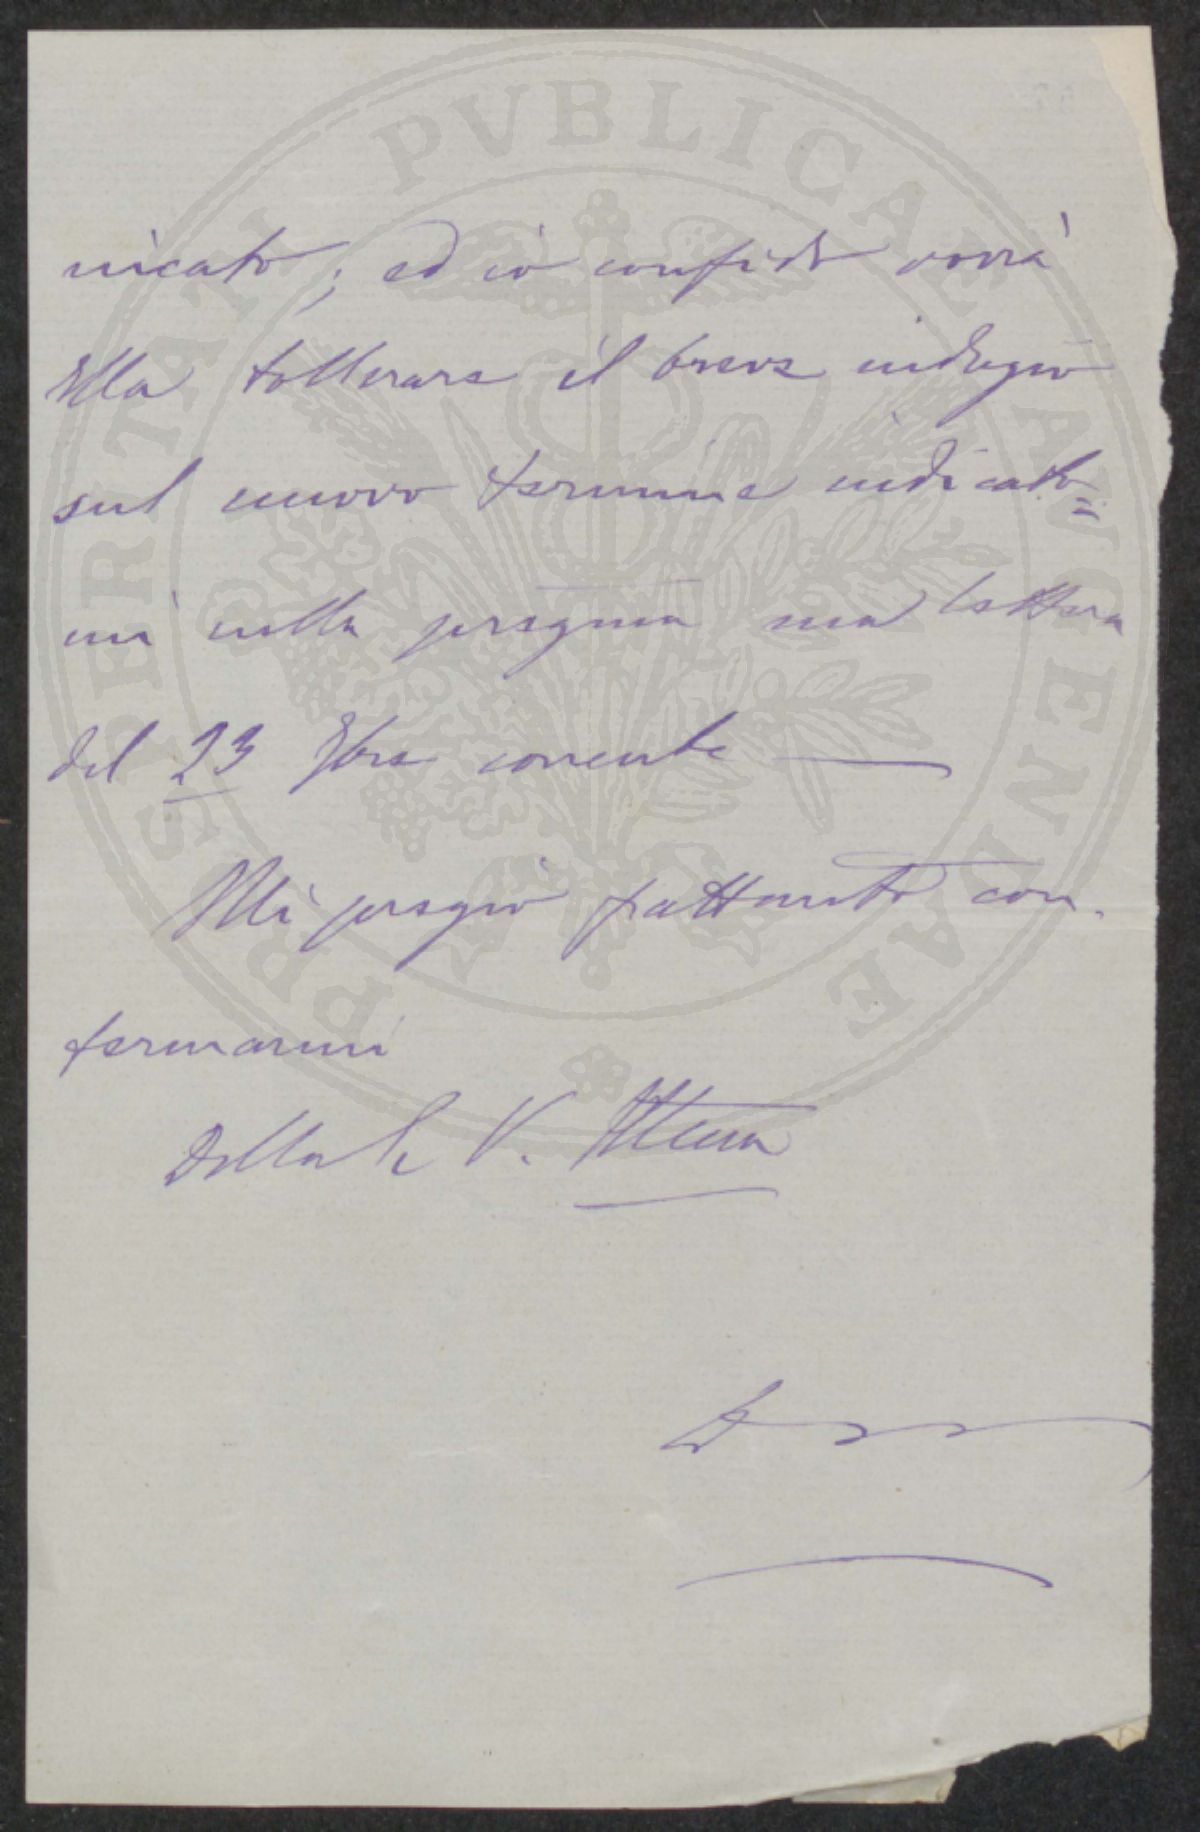 PROSPERITATI PVBLICAE AVGENDAE
nicato; ed io confido vorrà
Ella tollerare il breve indugio
sul nuovo termine indicato=
mi nella pregma sua lettera
del 23 Xbre corrente
Mi pregio frattanto con-
fermarmi
Della S. V. Illma